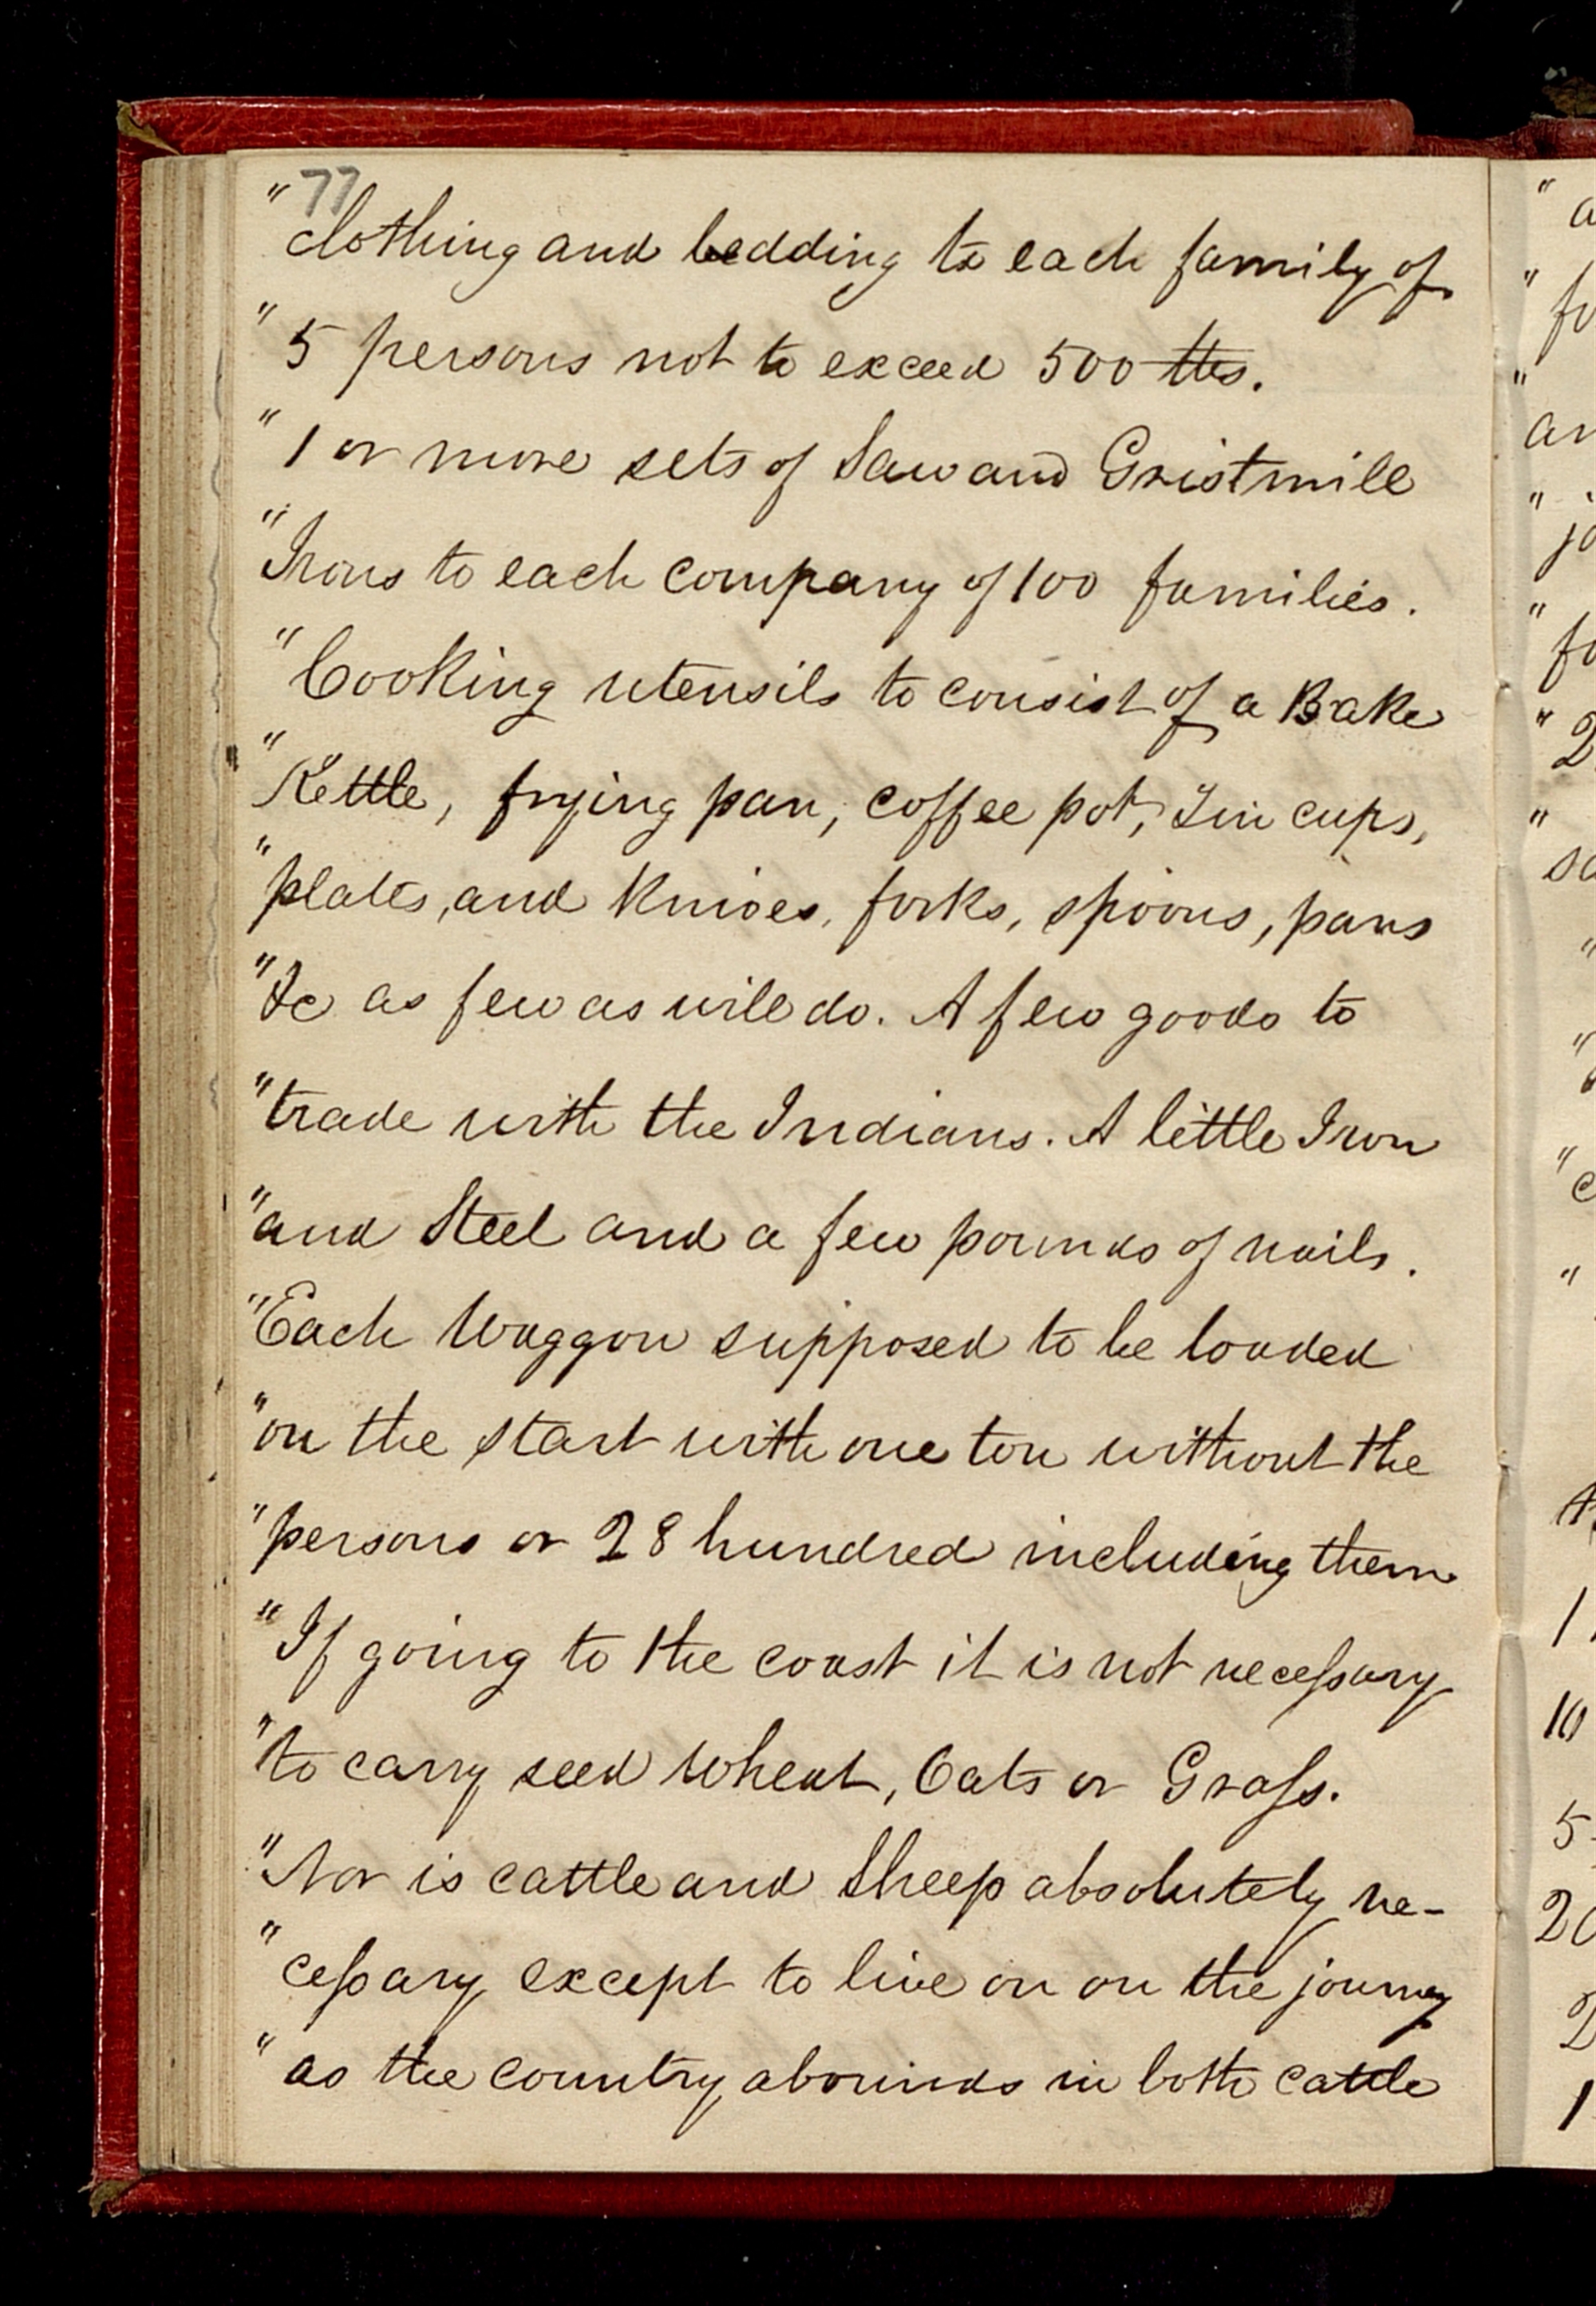 77
" clothing and bedding to each family of
" 5 persons not to exceed 500 lbs.
" 1 or more sets of Saw and Gristmill
" Irons to each company of 100 families.
" Cooking utensils to consist of a Bake
" Kettle, frying pan, coffee pot, Tin cups,
" plates, and Knives, forks, spoons, pans
" &c as few as will do. A few goods to
" trade with the Indians. A little Iron
" and Steel and a few pounds of nails.
" Each Waggon supposed to be loaded
" on the start with one ton without the
" persons or 28 hundred including them
" If going to the coast it is not necessary
" to carry seed Wheat, Oats or Grass.
" Nor is cattle and Sheep absolutely ne-
" cessary except to live on on the journey
" as the country abounds in both cattle